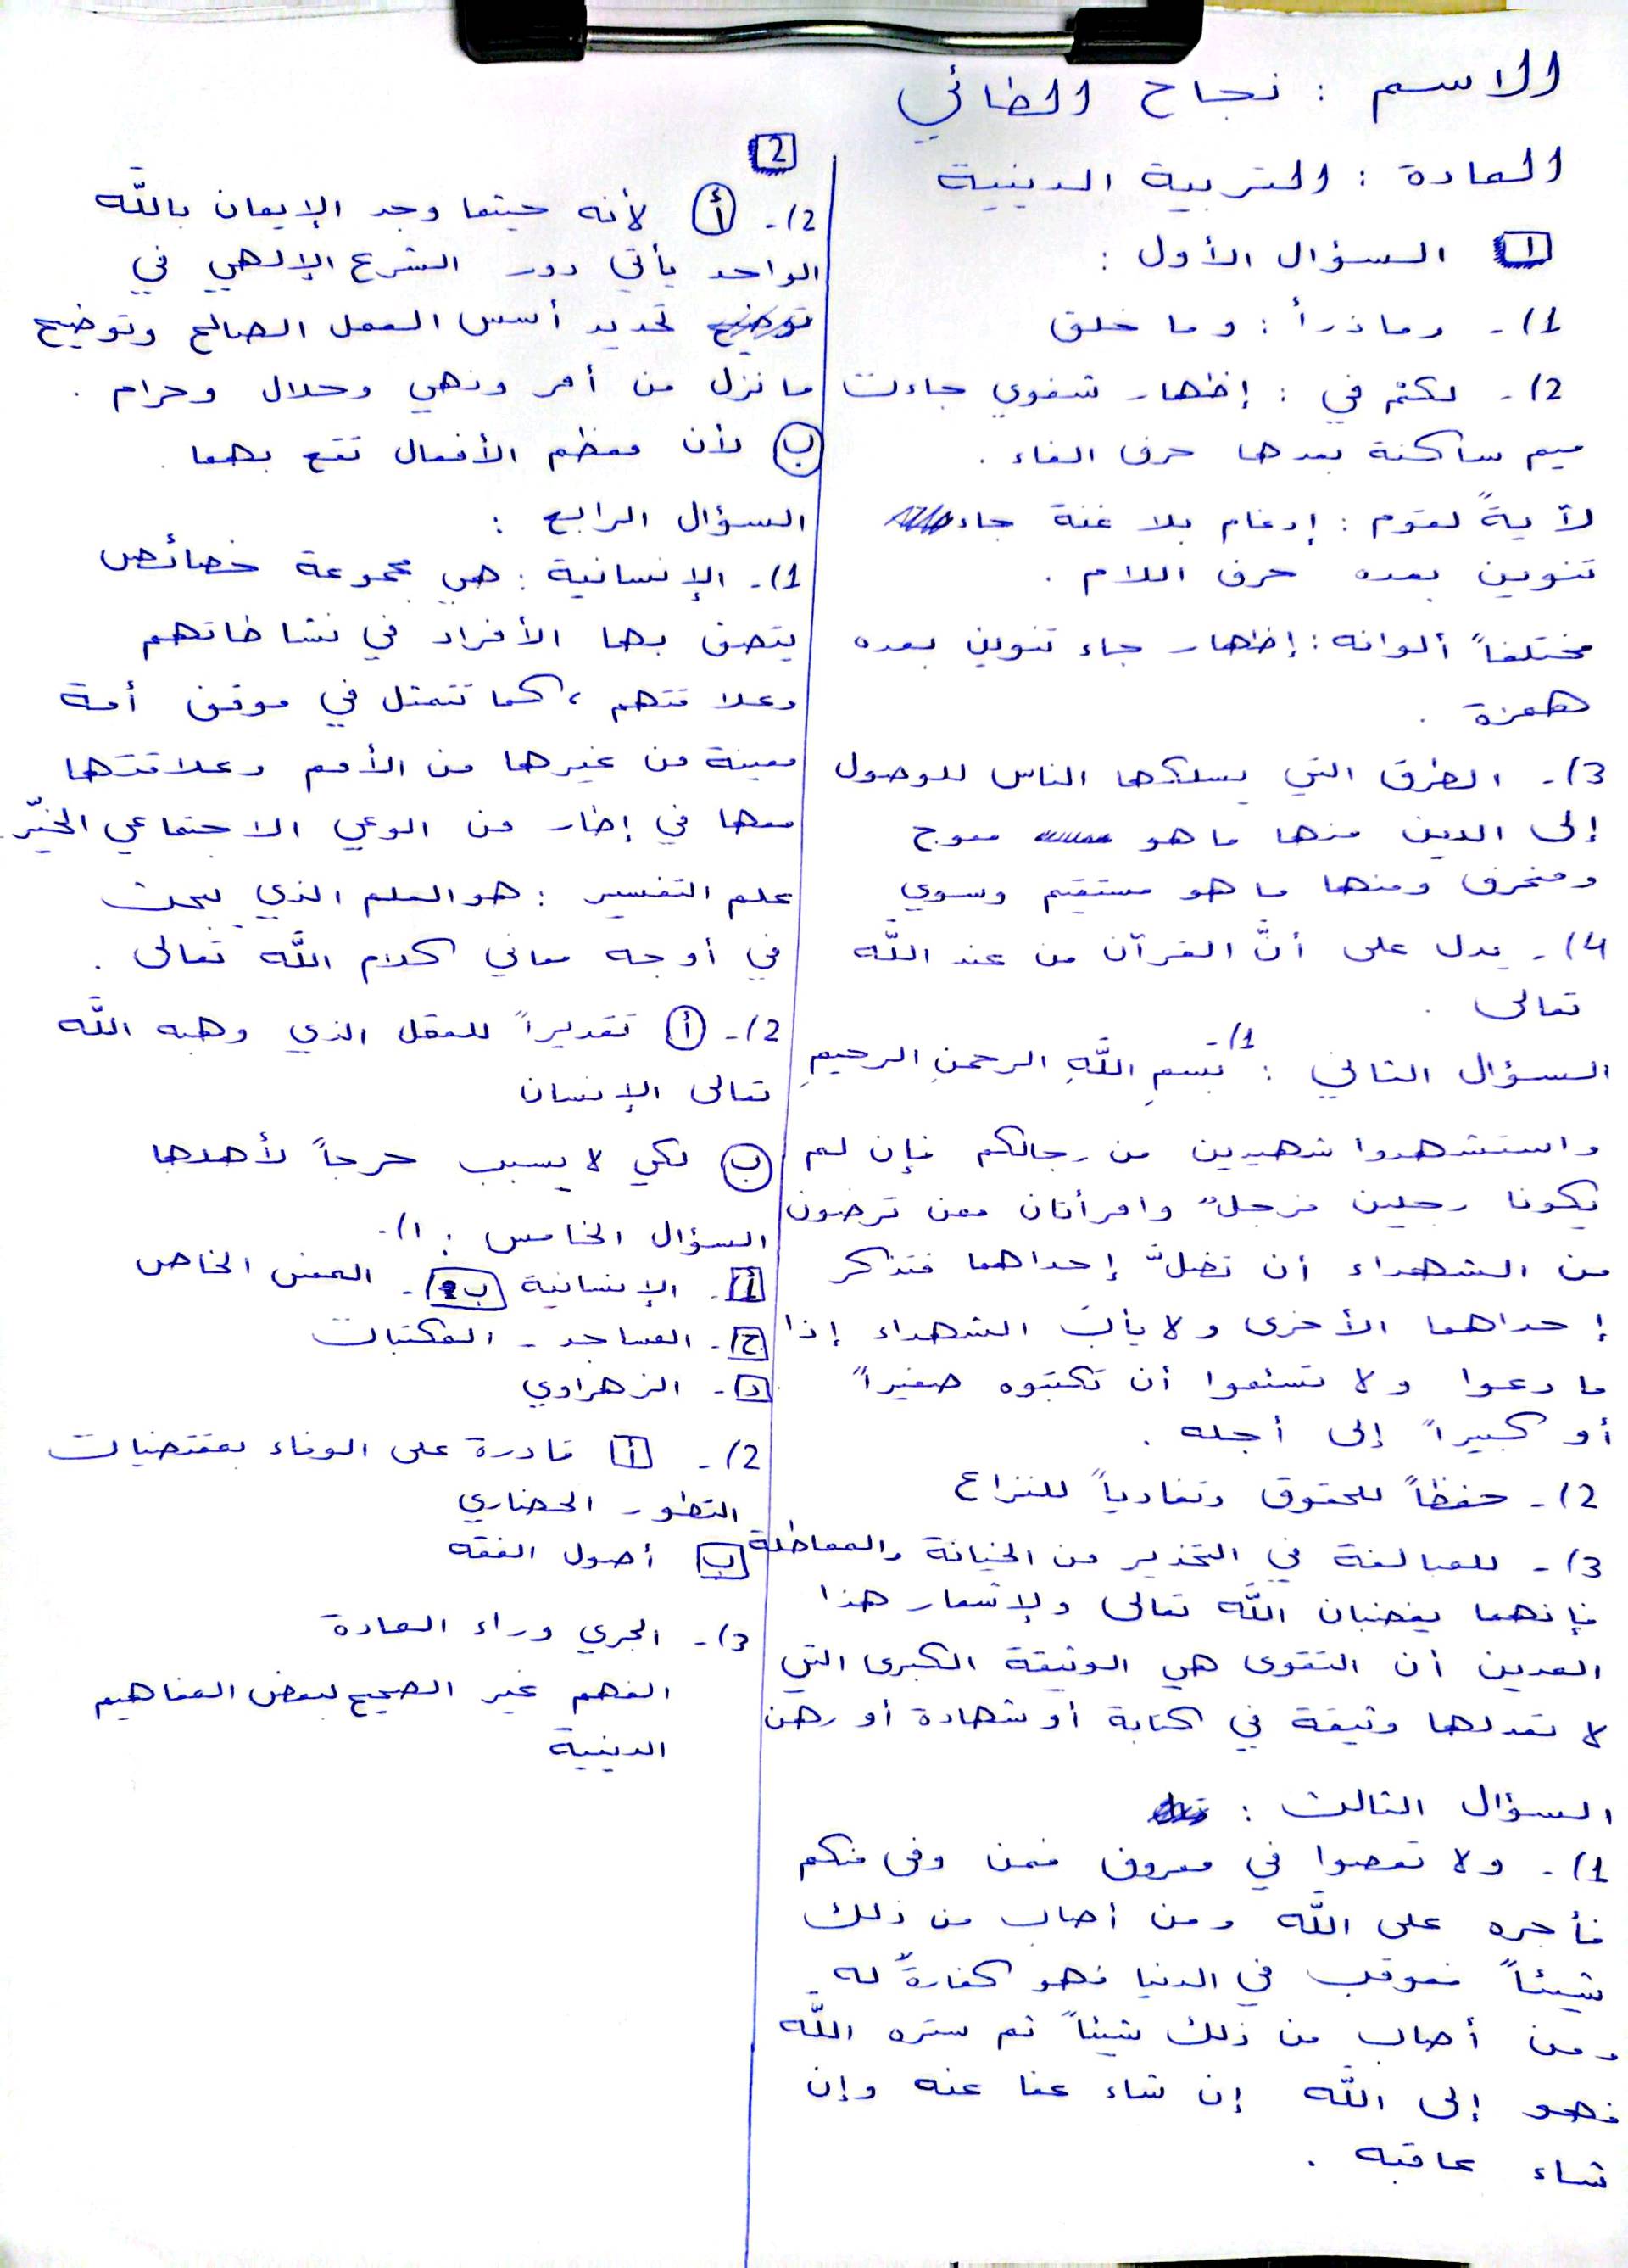 الاسم : نجاح الطائي
المادة : التربية الدينية
1 السؤال الأول :
1)- وما ذرأ : وما خلق
2)- لكم في : إظهار شفوي جاءت
ميم ساكنة بعدها حرف الفاء .
لآيةً لقوم : إدغام بلا غنة جاء
تنوين بعده حرف اللام .
مختلفاً ألوانه : إظهار جاء تنوين بعده
همزة .
3)- الطرق التي يسلكها الناس للوصول
إلى الدين منها ما هو معوج
ومنحرف ومنها ما هو مستقيم وسوي
4)- يدل على أنَّ القرآن من عند اللَّه
تعالى .
السؤال الثاني : 1)- بسمِ اللَّهِ الرحمنِ الرحيمِ
واستشهدوا شهيدين من رجالكم فإن لم
يكونا رجلين فرجلٌ وامرأتان ممن ترضون
من الشهداء أن تضلَّ إحداهما فتذكر
إحداهما الأخرى ولا يأبَ الشهداء إذا
ما دعوا ولا تسئموا أن تكتبوه صغيراً
أو كبيراً إلى أجله .
2)- حفظاً للحقوق وتفادياً للنزاع
3)- للمبالغة في التحذير من الخيانة والمماطلة
فإنهما يغضبان اللَّه تعالى ولإشعار هذا
المدين أن التقوى هي الوثيقة الكبرى التي
لا تعدلها وثيقة في كتابة أو شهادة أو رهن
السؤال الثالث :
1)- ولا تعصوا في معروف فمن وفى منكم
فأجره على اللَّه ومن أصاب من ذلك
شيئاً فعوقب في الدنيا فهو كفارةٌ له
ومن أصاب من ذلك شيئاً ثم ستره اللَّه
فهو إلى اللَّه إن شاء عفا عنه وإن
شاء عاقبه .
2
2)- أ لأنه حيثما وجد الإيمان باللَّه
الواحد يأتي دور الشرع الإلهي في
تحديد أسس العمل الصالح وتوضيح
ما نزل من أمر ونهي وحلال وحرام .
ب لأن معظم الأفعال تقع بهما .
السؤال الرابع :
1)- الإنسانية : هي مجموعة خصائص
يتصف بها الأفراد في نشاطاتهم
وعلاقتهم ، كما تتمثل في موقف أمة
معينة من غيرها من الأمم وعلاقتها
معها في إطار من الوعي الاجتماعي الخيّر .
علم التفسير : هو العلم الذي يبحث
في أوجه معاني كلام اللَّه تعالى .
2)- أ تقديراً للعقل الذي وهبه اللَّه
تعالى الإنسان
ب لكي لا يسبب حرجاً لأهلها
السؤال الخامس : 1)-
أ- الإنسانية ب- المعنى الخاص
ج- المساجد - المكتبات
د- الزهراوي
2)- أ قادرة على الوفاء بمقتضيات
التطور الحضاري
ب أصول الفقه
3)- الجري وراء المادة
الفهم غير الصحيح لبعض المفاهيم
الدينية